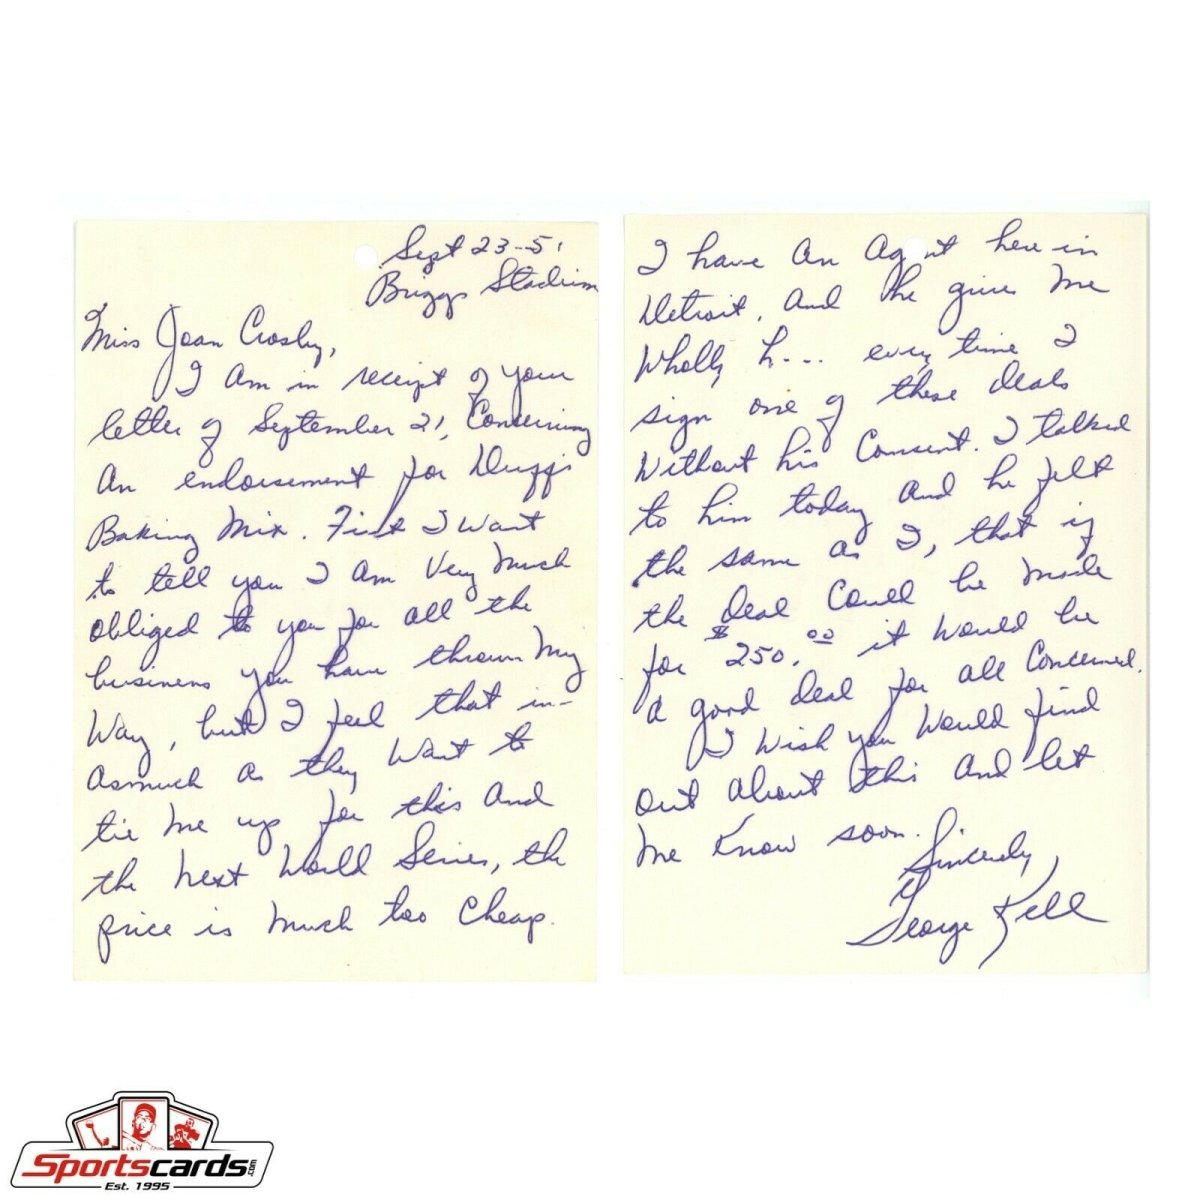 Sept 23-51
Briggs Stadium
Miss Joan Crosby,
I Am in receipt of your
letter of September 21, Concerning
An endorsement for Duff's
Baking Mix. First I Want
to tell you I Am Very Much
obliged to you for all the
business you have thrown My
Way, but I feel that in-
asmuch as they Want to
tie Me up for this And
the Next World Series, the
price is Much too Cheap.
I have An Agent here in
Detroit, And he gives Me
Wholly h... every time I
sign one of these deals
Without his Consent. I talked
to him today And he felt
the same as I, that if
the deal Could be Made
for $250.00 it Would be
a good deal for all Concerned.
I Wish you Would find
out about this And let
Me Know soon.
Sincerely,
George Kell
Sportscards.com
Est. 1995